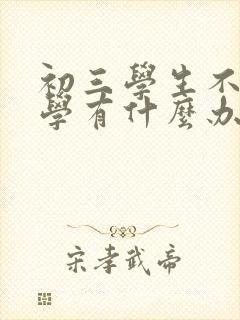 初三學生不
學有什麼办
宋孝武帝